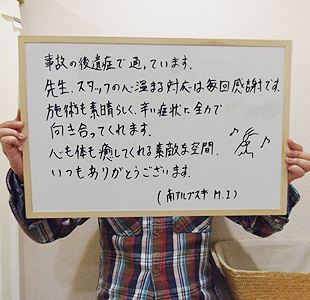 事故の後遺症で通っています。
先生、スタッフの心温まる対応は毎回感謝です。
施術も素晴らしく、辛い症状に全力で
向き合ってくれます。
心も体も癒してくれる素敵な空間、
いつもありがとうございます。
(南アルプス市 M.I)